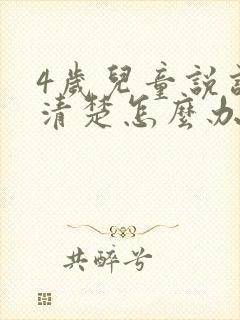 4歲兒童說
清楚怎麼办
共醉兮